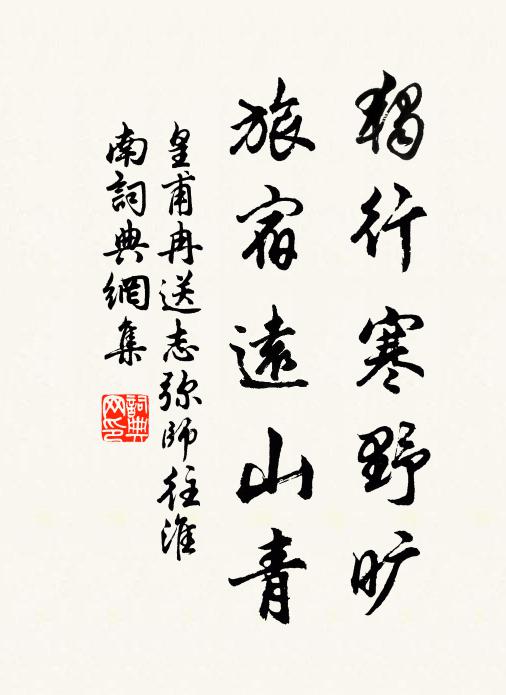 獨行寒野曠
旅宿遠山青
皇甫冉送志弥師往淮
南詞典網集
詞典网印